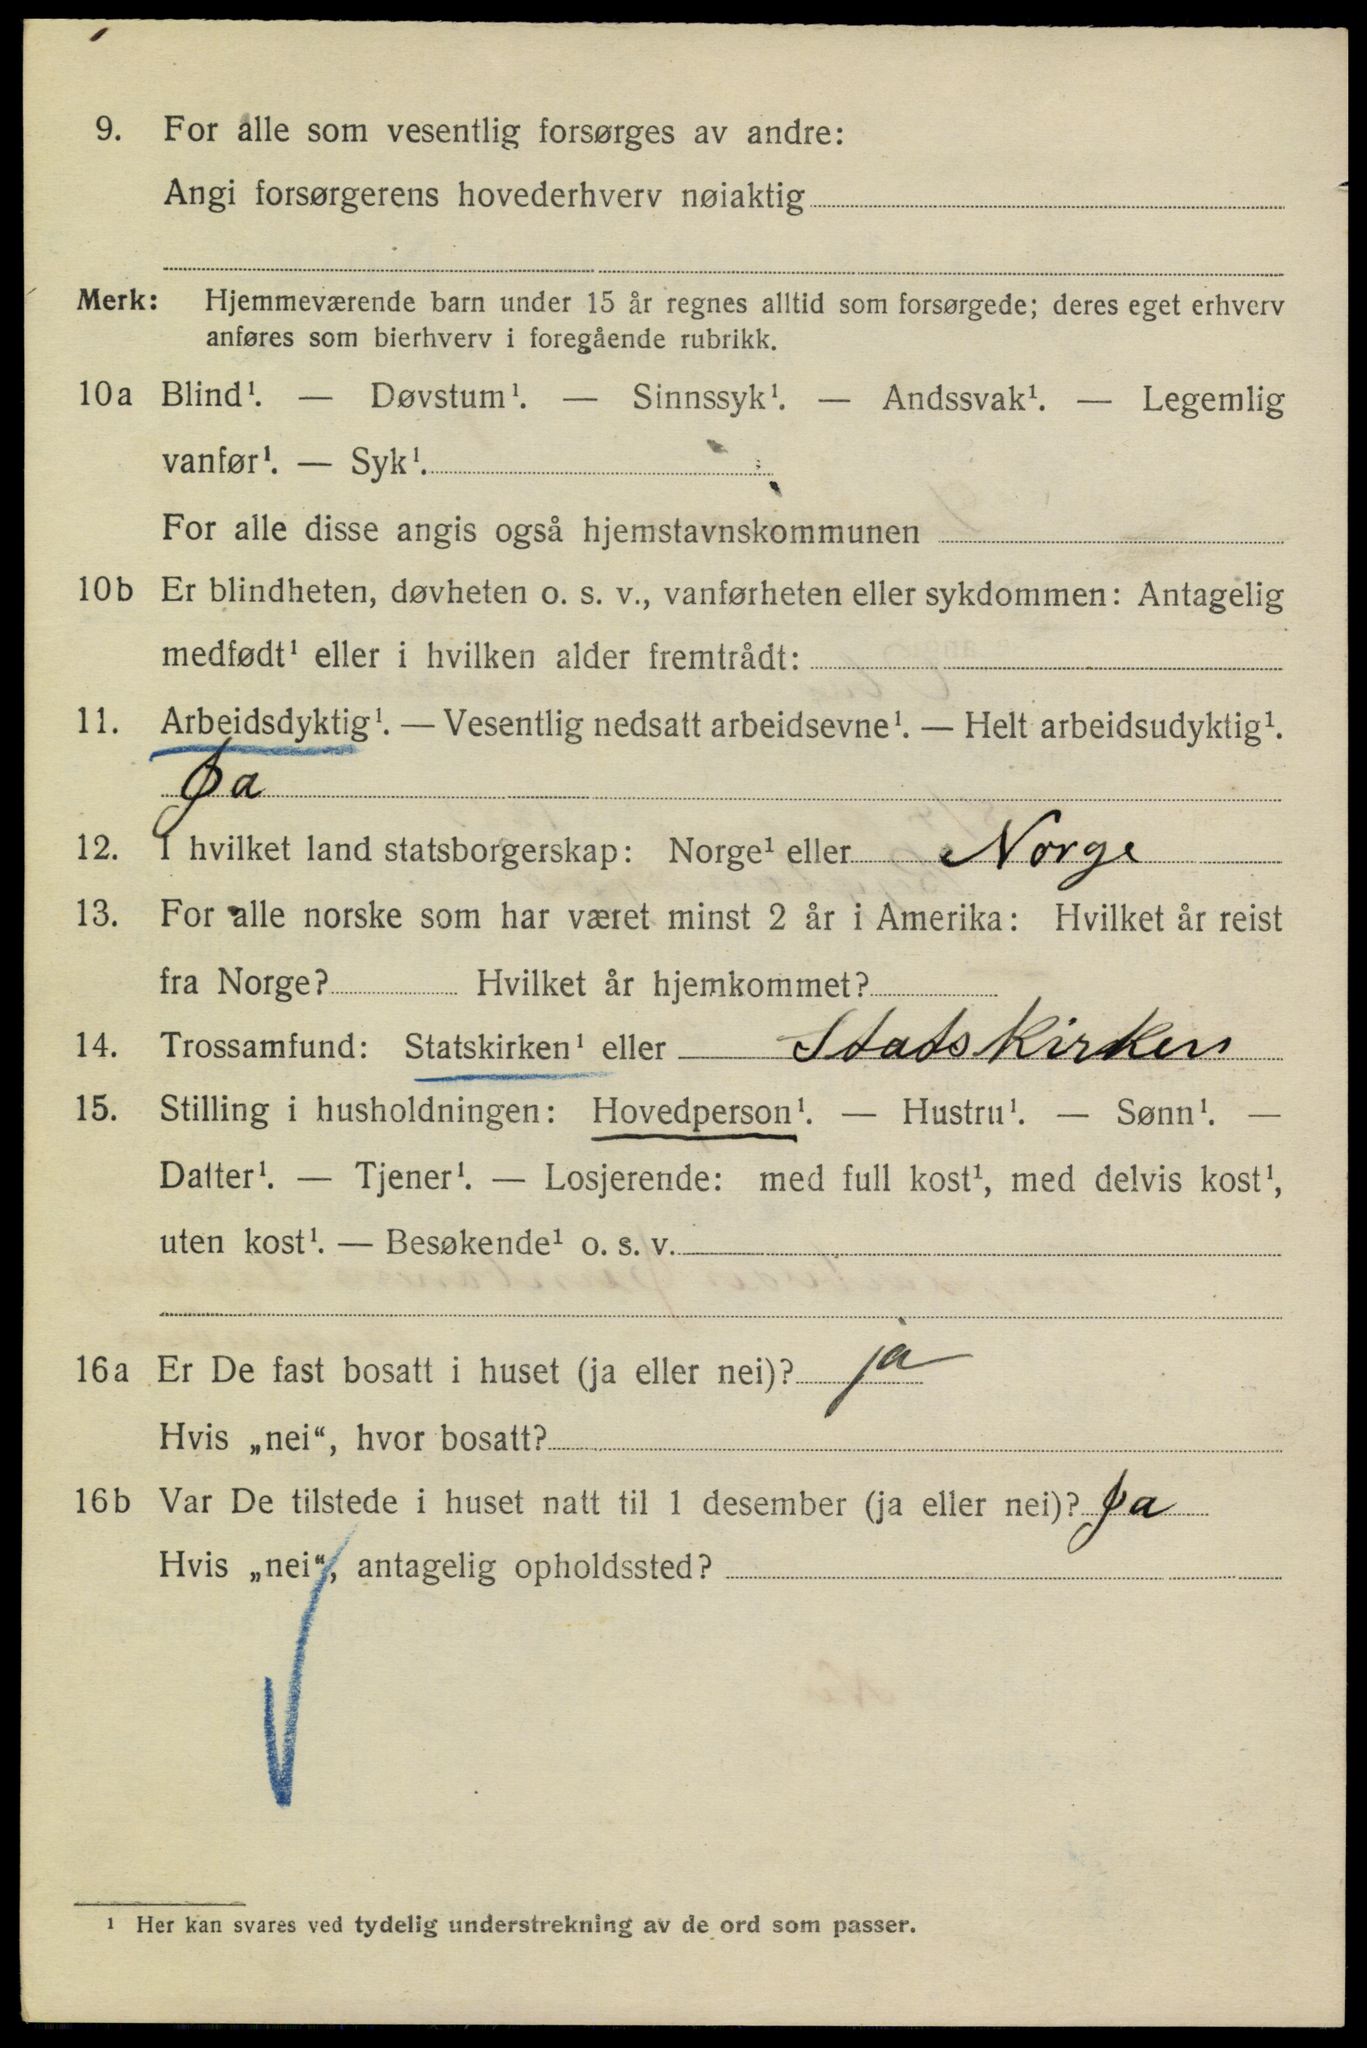 9. For alle som vesentlig forsørges av andre:
Angi forsørgerens hovederhverv nøiaktig
Merk: Hjemmeværende barn under 15 år regnes alltid som forsørgede; deres eget erhverv
anføres som bierhverv i foregående rubrikk.
10a Blind¹. — Døvstum¹. — Sinnssyk¹. — Andssvak¹. — Legemlig
vanfør¹. — Syk¹.
For alle disse angis også hjemstavnskommunen
10b Er blindheten, døvheten o. s. v., vanførheten eller sykdommen: Antagelig
medfødt¹ eller i hvilken alder fremtrådt:
11. Arbeidsdyktig¹. — Vesentlig nedsatt arbeidsevne¹. — Helt arbeidsudyktig¹.
Ja
12. I hvilket land statsborgerskap: Norge¹ eller Norge
13. For alle norske som har været minst 2 år i Amerika: Hvilket år reist
fra Norge? Hvilket år hjemkommet?
14. Trossamfund: Statskirken¹ eller Statskirken
15. Stilling i husholdningen: Hovedperson¹. — Hustru¹. — Sønn¹. —
Datter¹. — Tjener¹. — Losjerende: med full kost¹, med delvis kost¹,
uten kost¹. — Besøkende¹ o. s. v.
16a Er De fast bosatt i huset (ja eller nei)? ja
Hvis „nei“, hvor bosatt?
16b Var De tilstede i huset natt til 1 desember (ja eller nei)? Ja
Hvis „nei“, antagelig opholdssted?
¹ Her kan svares ved tydelig understrekning av de ord som passer.